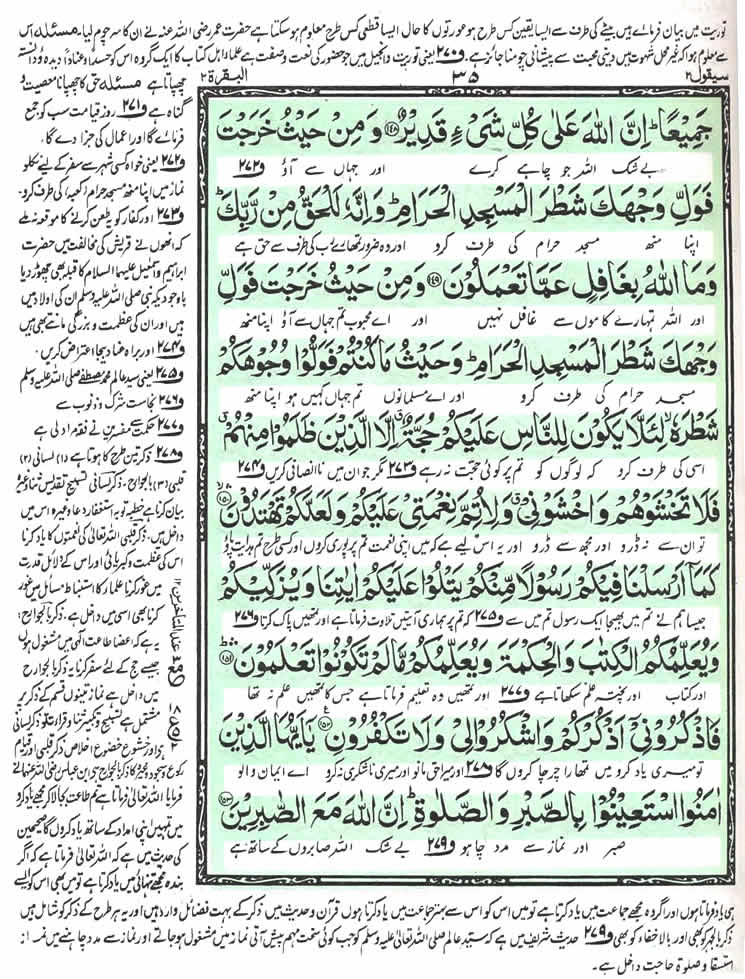 توریت میں بیان فرمائے ہیں بیٹے کی طرف سے ایسا یقین کس طرح ہو عورتوں کا حال ایسا قطعی کس طرح معلوم ہو سکتا ہے حضرت عمر رضی اللہ عنہ نے ان کا سر چوم لیا۔ مسئلہ اس
سے معلوم ہوا کہ غیر محل شہوت میں دینی محبت سے پیشانی چومنا جائز ہے۔ ف۲۷۰ یعنی توریت و انجیل میں جو حضور کی نعت و صفت ہے علماء اہل کتاب کا ایک گروہ اس کو حسدًا و عنادًا دیدہ و دانستہ
سیقول ۲ ۳۵ البقرۃ ۲
جَمِیْعًاؕ اِنَّ اللّٰهَ عَلٰى كُلِّ شَیْءٍ قَدِیْرٌ۝۱۴۸ وَ مِنْ حَیْثُ خَرَجْتَ
بے شک اللہ جو چاہے کرے اور جہاں سے آؤ ف۲۷۲
فَوَلِّ وَجْهَكَ شَطْرَ الْمَسْجِدِ الْحَرَامِؕ وَ اِنَّهٗ لَلْحَقُّ مِنْ رَّبِّكَؕ
اپنا منھ مسجد حرام کی طرف کرو اور وہ ضرور تمہارے رب کی طرف سے حق ہے
وَ مَا اللّٰهُ بِغَافِلٍ عَمَّا تَعْمَلُوْنَ۝۱۴۹ وَ مِنْ حَیْثُ خَرَجْتَ فَوَلِّ
اور اللہ تمہارے کاموں سے غافل نہیں اور اے محبوب تم جہاں سے آؤ اپنا منھ
وَجْهَكَ شَطْرَ الْمَسْجِدِ الْحَرَامِؕ وَ حَیْثُ مَا كُنْتُمْ فَوَلُّوْا وُجُوْهَكُمْ
مسجد حرام کی طرف کرو اور اے مسلمانوں تم جہاں کہیں ہو اپنا منھ
شَطْرَهٗۙ لِئَلَّا یَكُوْنَ لِلنَّاسِ عَلَیْكُمْ حُجَّةٌۗۙ اِلَّا الَّذِیْنَ ظَلَمُوْا مِنْهُمْۗ
اسی کی طرف کرو کہ لوگوں کو تم پر کوئی حجت نہ رہے ف۲۷۳ مگر جو ان میں نا انصافی کریں ف۲۷۴
فَلَا تَخْشَوْهُمْ وَ اخْشَوْنِیْۗ وَ لِاُتِمَّ نِعْمَتِیْ عَلَیْكُمْ وَ لَعَلَّكُمْ تَهْتَدُوْنَ۝۱۵۰
تو ان سے نہ ڈرو اور مجھ سے ڈرو اور یہ اس لیے ہے کہ میں اپنی نعمت تم پر پوری کروں اور کسی طرح تم ہدایت پاؤ
كَمَاۤ اَرْسَلْنَا فِیْكُمْ رَسُوْلًا مِّنْكُمْ یَتْلُوْا عَلَیْكُمْ اٰیٰتِنَا وَ یُزَكِّیْكُمْ
جیسا ہم نے تم میں بھیجا ایک رسول تم میں سے ف۲۷۵ کہ تم پر ہماری آیتیں تلاوت فرماتا ہے اور تمھیں پاک کرتا ف۲۷۶
وَ یُعَلِّمُكُمُ الْكِتٰبَ وَ الْحِكْمَةَ وَ یُعَلِّمُكُمْ مَّا لَمْ تَكُوْنُوْا تَعْلَمُوْنَ۝۱۵۱
اور کتاب اور پختہ علم سکھاتا ہے ف۲۷۷ اور تمھیں وہ تعلیم فرماتا ہے جس کا تمھیں علم نہ تھا
فَاذْكُرُوْنِیْۤ اَذْكُرْكُمْ وَ اشْكُرُوْا لِیْ وَ لَا تَكْفُرُوْنِ۝۱۵۲ یٰۤاَیُّهَا الَّذِیْنَ
تو میری یاد کرو میں تمھارا چرچا کروں گا ف۲۷۸ اور میرا حق مانو اور میری ناشکری نہ کرو اے ایمان والو
اٰمَنُوا اسْتَعِیْنُوْا بِالصَّبْرِ وَ الصَّلٰوةِؕ اِنَّ اللّٰهَ مَعَ الصّٰبِرِیْنَ۝۱۵۳
صبر اور نماز سے مدد چاہو ف۲۷۹ بے شک اللہ صابروں کے ساتھ ہے
چھپاتا ہے مسئلہ حق کا چھپانا معصیت و
گناہ ہے ف۲۷۱ روز قیامت سب کو جمع
فرمائے گا اور اعمال کی جزا دے گا۔
ف۲۷۲ یعنی خواہ کسی شہر سے سفر کے لیے نکلو
نماز میں اپنا منھ مسجد حرام (کعبہ) کی طرف کرو۔
ف۲۷۳ اور کفار کو یہ طعن کرنے کا موقعہ نہ ملے
کہ انھوں نے قریش کی مخالفت میں حضرت
ابراہیم و اسمٰعیل علیہما السلام کا قبلہ بھی چھوڑ دیا
باوجودیکہ نبی صلی اللہ علیہ وسلم ان کی اولاد میں
ہیں اور ان کی عظمت و بزرگی مانتے بھی ہیں
ف۲۷۴ اور براہ عناد بیجا اعتراض کریں۔
ف۲۷۵ یعنی سید عالم محمد مصطفٰے صلی اللہ علیہ وسلم
ف۲۷۶ نجاست شرک و ذنوب سے
ف۲۷۷ حکمت سے مفسرین نے فقہ مراد لی ہے
ف۲۷۸ ذکر تین طرح کا ہوتا ہے (۱) لسانی (۲)
قلبی (۳) بالجوارح۔ ذکر لسانی تسبیح تقدیس ثنا وغیرہ
بیان کرنا ہے خطبہ توبہ استغفار دعا وغیرہ اس میں
داخل ہیں۔ ذکر قلبی اللہ تعالیٰ کی نعمتوں کا یاد کرنا
اس کی عظمت و کبریائی اور اس کے دلائل قدرت
میں غور کرنا علماء کا استنباط مسائل میں غور
کرنا بھی اسی میں داخل ہے۔ ذکر بالجوارح
یہ ہے کہ اعضا طاعت الٰہی میں مشغول ہوں
جیسے حج کے لیے سفر کرنا یہ ذکر بالجوارح
میں داخل ہے نماز تینوں قسم کے ذکر پر
مشتمل ہے تسبیح و تکبیر ثنا و قراءت تو ذکر لسانی
ہے اور خشوع خضوع اخلاص ذکر قلبی اور قیام
رکوع و سجود وغیرہ ذکر بالجوارح ہے ابن عباس رضی اللہ عنہما نے
فرمایا اللہ تعالیٰ فرماتا ہے تم طاعت بجا لا کر مجھے یاد کرو
میں تمہیں اپنی امداد کے ساتھ یاد کروں گا صحیحین
کی حدیث میں ہے کہ اللہ تعالیٰ فرماتا ہے کہ اگر
بندہ مجھے تنہائی میں یاد کرتا ہے تو میں بھی اس کو ایسے
ہی یاد فرماتا ہوں اور اگر وہ مجھے جماعت میں یاد کرتا ہے تو میں اس کو اس سے بہتر جماعت میں یاد کرتا ہوں قرآن و حدیث میں ذکر کے بہت فضائل وارد ہیں اور یہ ہر طرح کے ذکر کو شامل ہیں
ذکر بالجہر کو بھی اور بالاخفاء کو بھی ف۲۷۹ حدیث شریف میں ہے کہ سید عالم صلی اللہ تعالیٰ علیہ وسلم کو جب کوئی سخت مہم پیش آتی نماز میں مشغول ہو جاتے اور نماز سے مدد چاہنے میں نماز
استسقا و صلوۃ حاجت داخل ہے۔